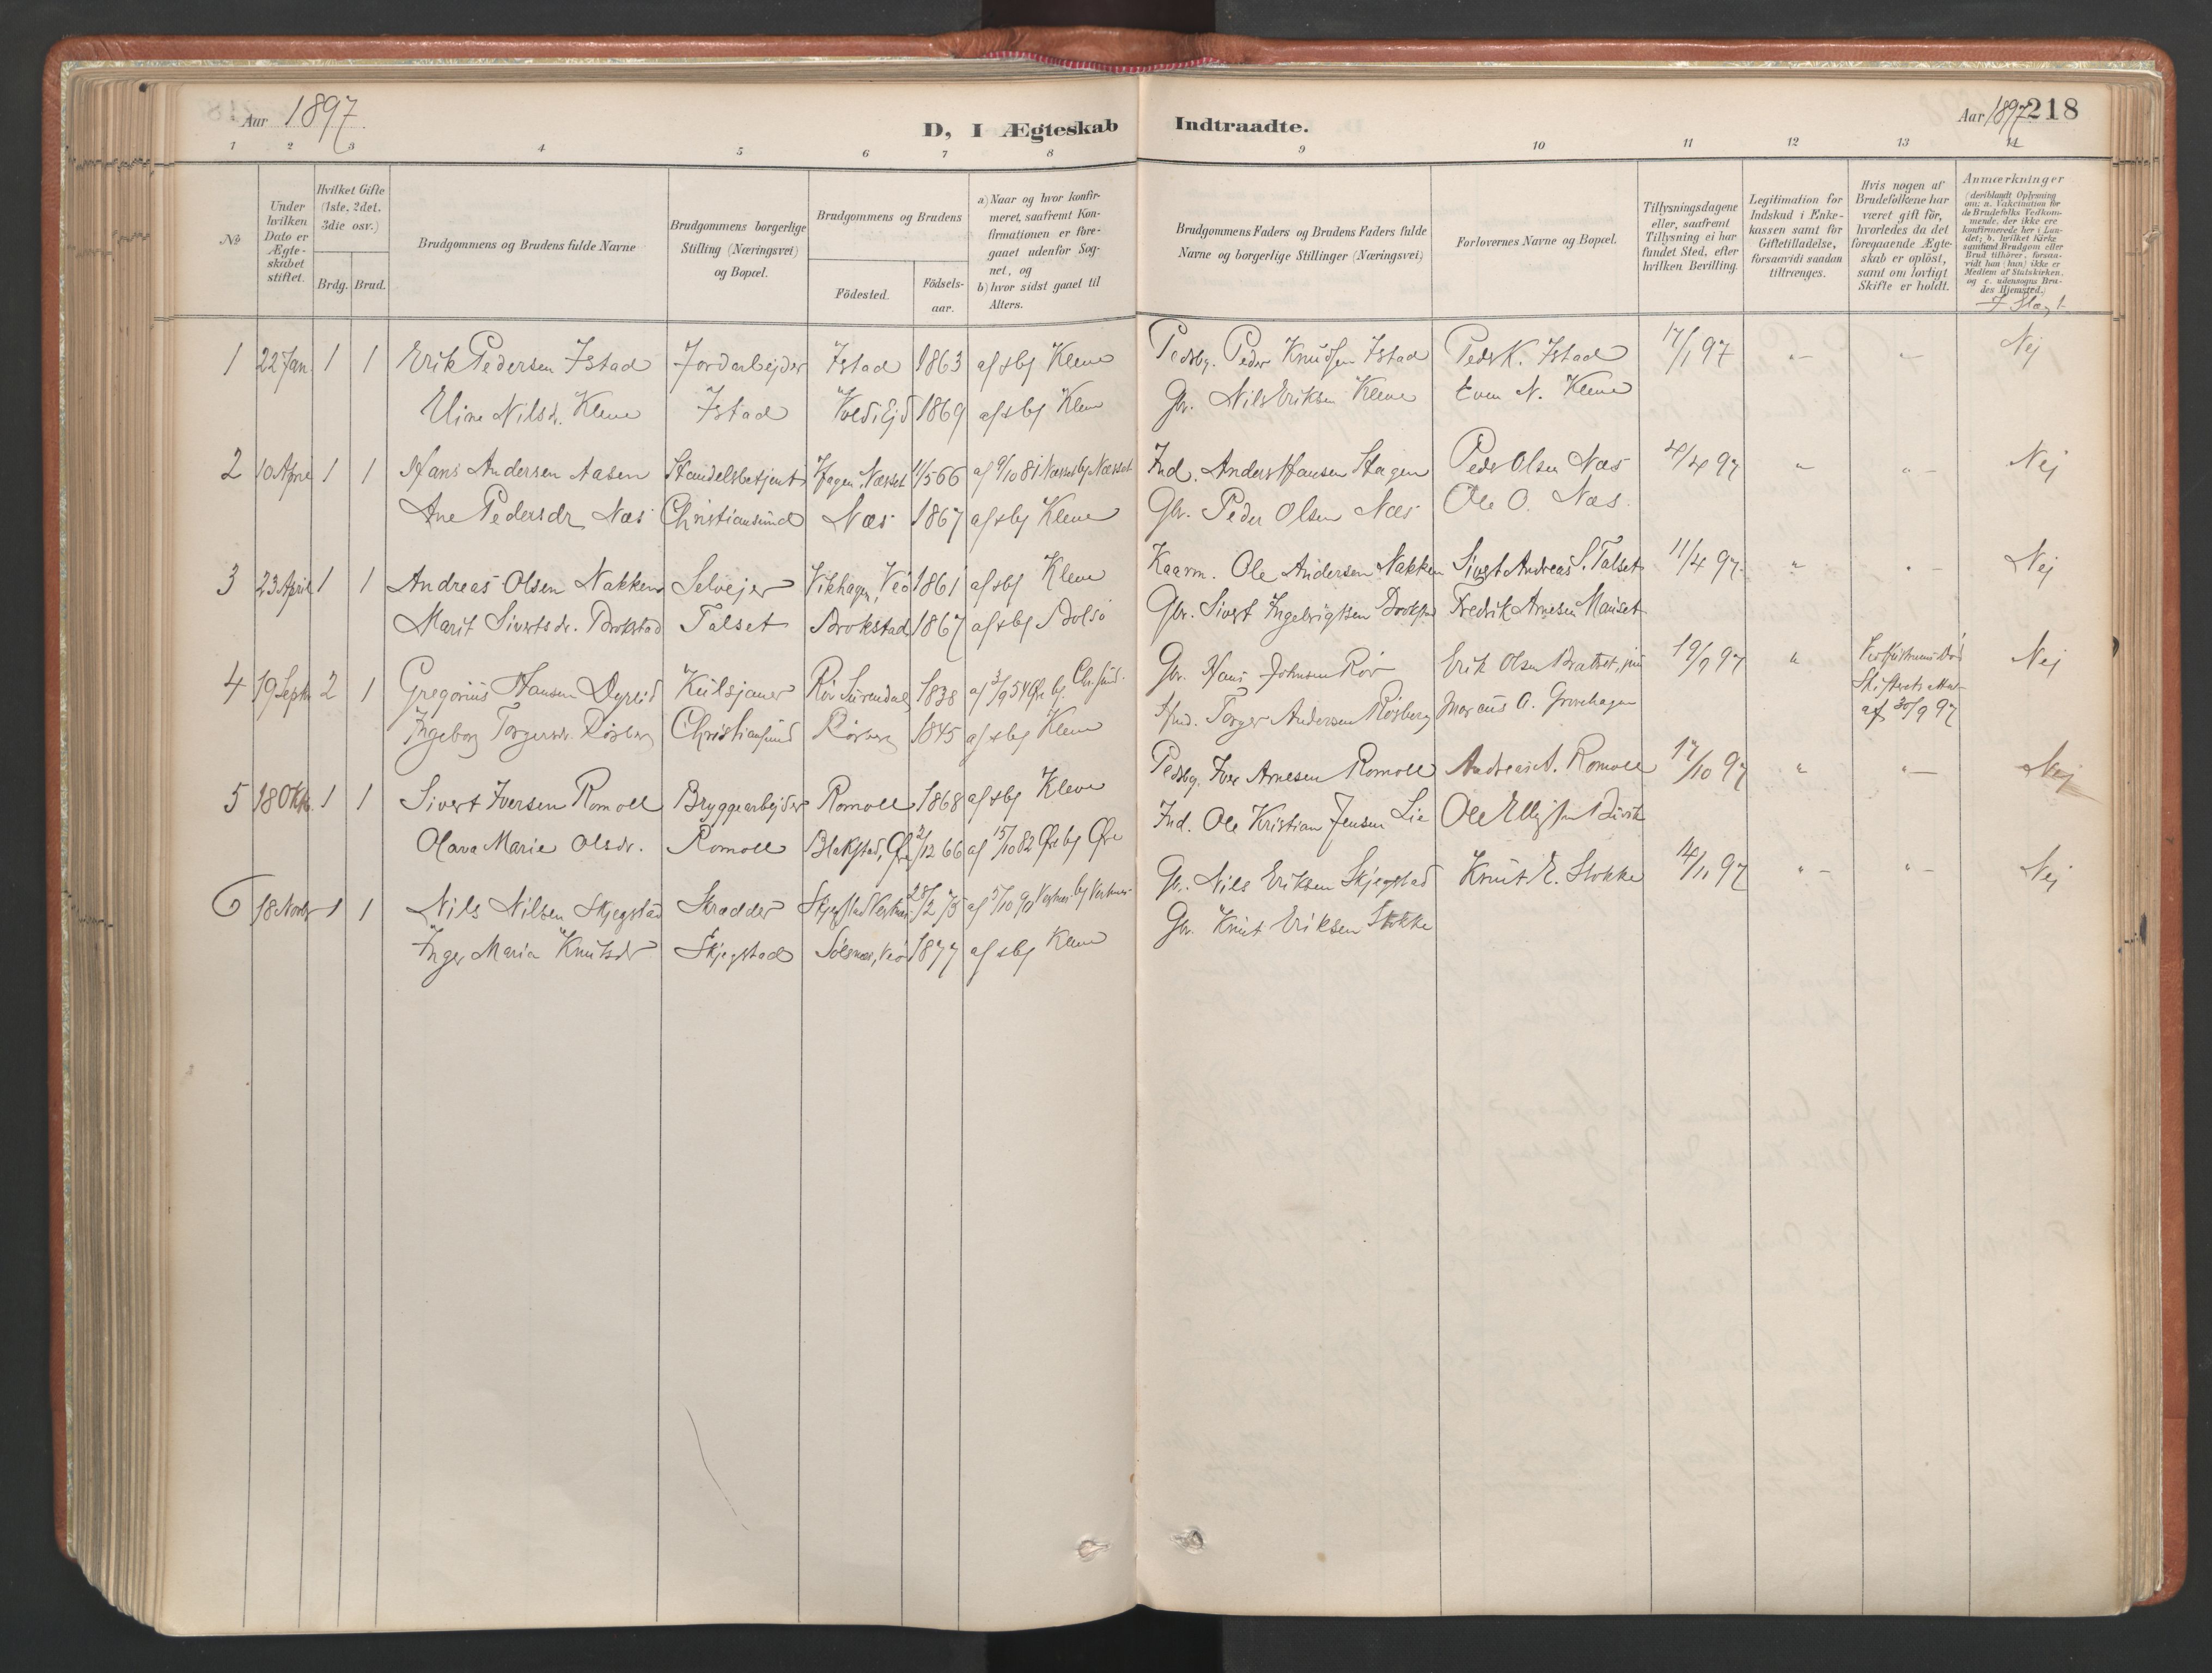 Aar 1897.
D, I Ægteskab Indtraadte.
Aar 1897 218
1 2 3 4 5 6 7 8 9 10 11 12 13 14
No
Under hvilken Dato er Ægteskabet stiftet.
Hvilket Gifte (1ste, 2det, 3die osv.)
Brdg. Brud.
Brudgommens og Brudens fulde Navne
Brudgommens borgerlige Stilling (Næringsvei) og Bopæl.
Brudgommens og Brudens
Födested. Födsels-aar.
a) Naar og hvor konfirmeret, saafremt Konfirmationen er foregaaet udenfor Sognet, og
b) hvor sidst gaaet til Alters.
Brudgommens Faders og Brudens Faders fulde Navne og borgerlige Stillinger (Næringsvei)
Forlovernes Navne og Bopæl.
Tillysningsdagene eller, saafremt Tillysning ei har fundet Sted, efter hvilken Bevilling.
Legitimation for Indskud i Enkekassen samt for Giftetilladelse, forsaavidt saadan tiltrænges.
Hvis nogen af Brudefolkene har været gift för, hvorledes da det foregaaende Ægteskab er oplöst, samt om lovligt Skifte er holdt.
Anmærkninger
(deriblandt Oplysning om: a. Vakcination for de Brudefolks Vedkommende, der ikke ere konfirmerede her i Landet; b. hvilket Kirkesamfund Brudgom eller Brud tilhörer, forsaavidt han (hun) ikke er Medlem af Statskirken, og c. udensogns Brudes Hjemsted.)
I Slægt
1 22 Jan. 1 1 Erik Pedersen Istad Jordarbejder Istad 1863 af sbg Kleve Pedsbg. Peder Knudsen Istad Peder K. Istad 17/1 97 " " Nej
Eline Nilsdr. Kleve Istad Vold i Ejd 1869 af sbg Kleve Gbr. Nils Eriksen Kleve Even N. Kleve
2 10 April 1 1 Hans Andersen Aasen Handelsbetjent Hagen, Nesset 11/5 66 af 9/10 81 Nesset bg Nesset Ind. Anders Hansen Hagen Peder Olsen Næs 4/4 97 " " Nej
Ane Pedersdr Næs Christiansund Næs 1867 af sbg Kleve Gbr. Peder Olsen Næs Ole O. Næs.
3 23 April 1 1 Andreas Olsen Nakken Selvejer Vikhagen, Veö 1861 af sbg Kleve Kaarm. Ole Andersen Nakken Sivert Andreas S. Talset 11/4 97 " " Nej
Marit Sivertsdr. Brokstad Talset Brokstad 1867 af sbg Bolsö Gbr. Sivert Ingebrigtsen Brokstad Fredrik Arnesen Mauset
4 19 Septr 2 1 Gregorius Hansen Dyrlid Kulsjauer Röv Surendal 1838 af 3/9 54 Öre bg. Chrsund. Gbr. Hans Johnsen Röv Erik Olsen Bratset, jun 19/9 97 " Nej
Skifteratt. af 30/9 97
Ingeborg Torgersdr. Rösberg Christiansund Rösberg 1845 af sbg Kleve Torger Andersen Rösberg Marcus A. Grovehagen
5 18 Oktr. 1 1 Sivert Iversen Romoll Bryggearbejder Romoll 1868 af sbg Kleve Pedsbg. Iver Arnesen Romoll Andreas A. Romoll 17/10 97 " " Nej
Olava Marie Olsdr. Romoll Blakstad, Öre 2/12 66 af 15/10 82 Öre bg Öre Ind. Ole Kristian Jensen Lie Ole
6 18 Novbr 1 1 Nils Nilsen Skjegstad Skrædder Skjegstad Vestnes 28/2 75 af 5/10 90 Vestnes bg Vestnes Gbr. Nils Eriksen Skjegstad Knut E. Stokke 14/11 97 " " Nej
Inger Maria Knutsdr Skjegstad Sölsnes, Veö 1877 af sbg Kleve Gbr. Knut Eriksen Stokke